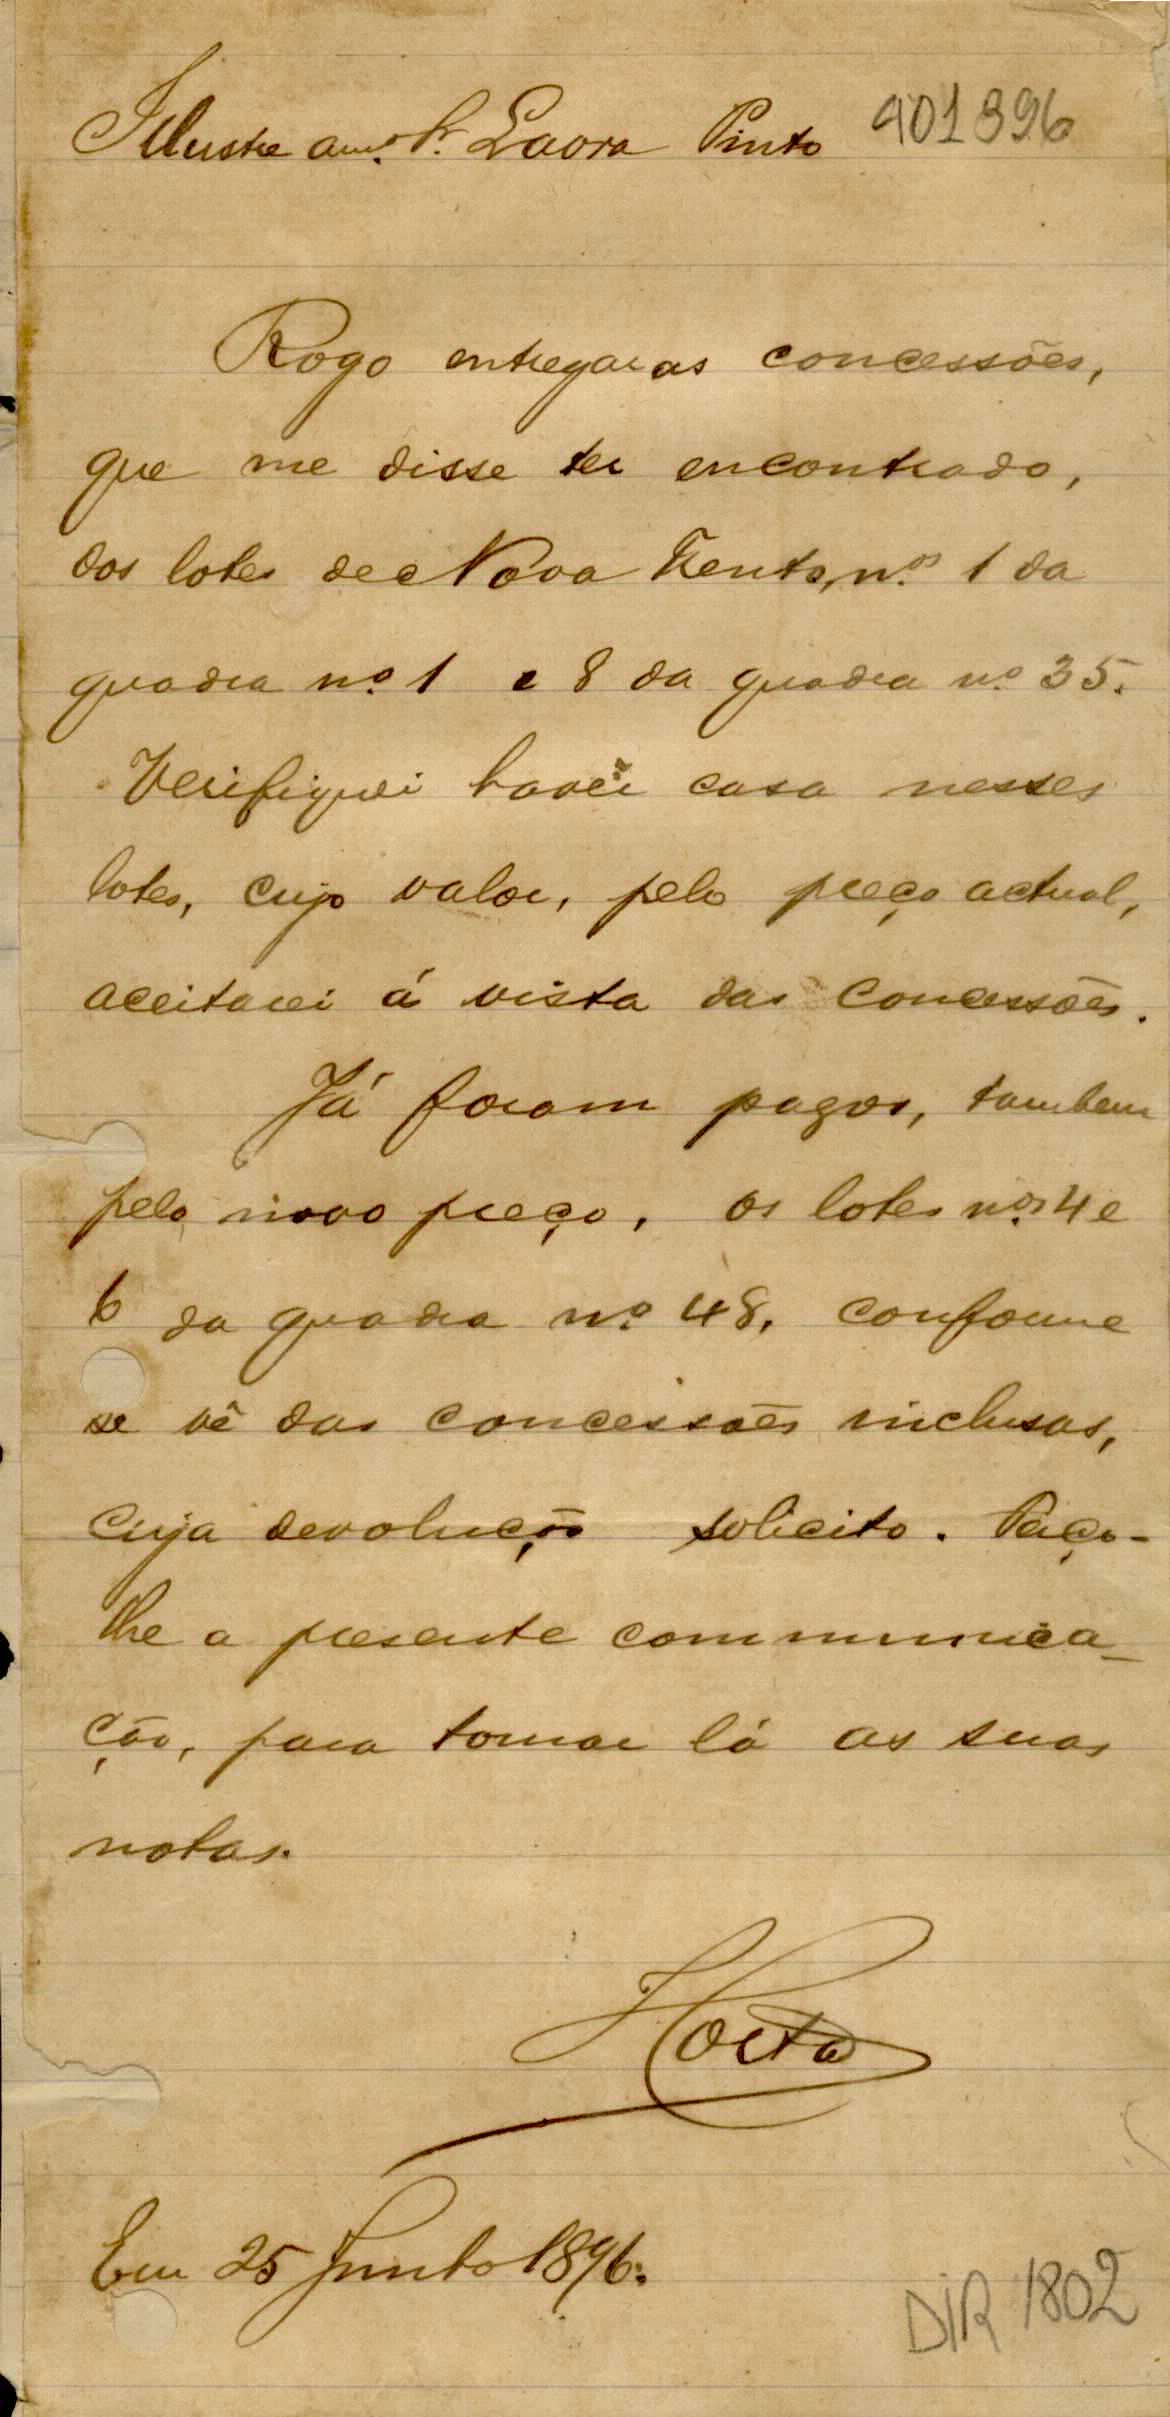 Illustre am.º Sr. Laora Pinto 401896
Rogo entregar as concessões,
que me disse ter encontrado,
dos lotes de Nova Trento, n.os 1 da
quadra n.º 1 e 8 da quadra n.º 35.
Verifiquei haver casa nesses
lotes, cujo valor, pelo preço actual,
aceitarei á vista das concessões.
Já foram pagos, tambem
pelo novo preço, os lotes n.os 4 e
6 da quadra n.º 48, conforme
se vê das concessões inclusas,
cuja devolução solicito. Faço-
lhe a presente communica-
ção, para tomar lá as suas
notas.
Horta
Em 25 Junho 1896.
DIR 1802